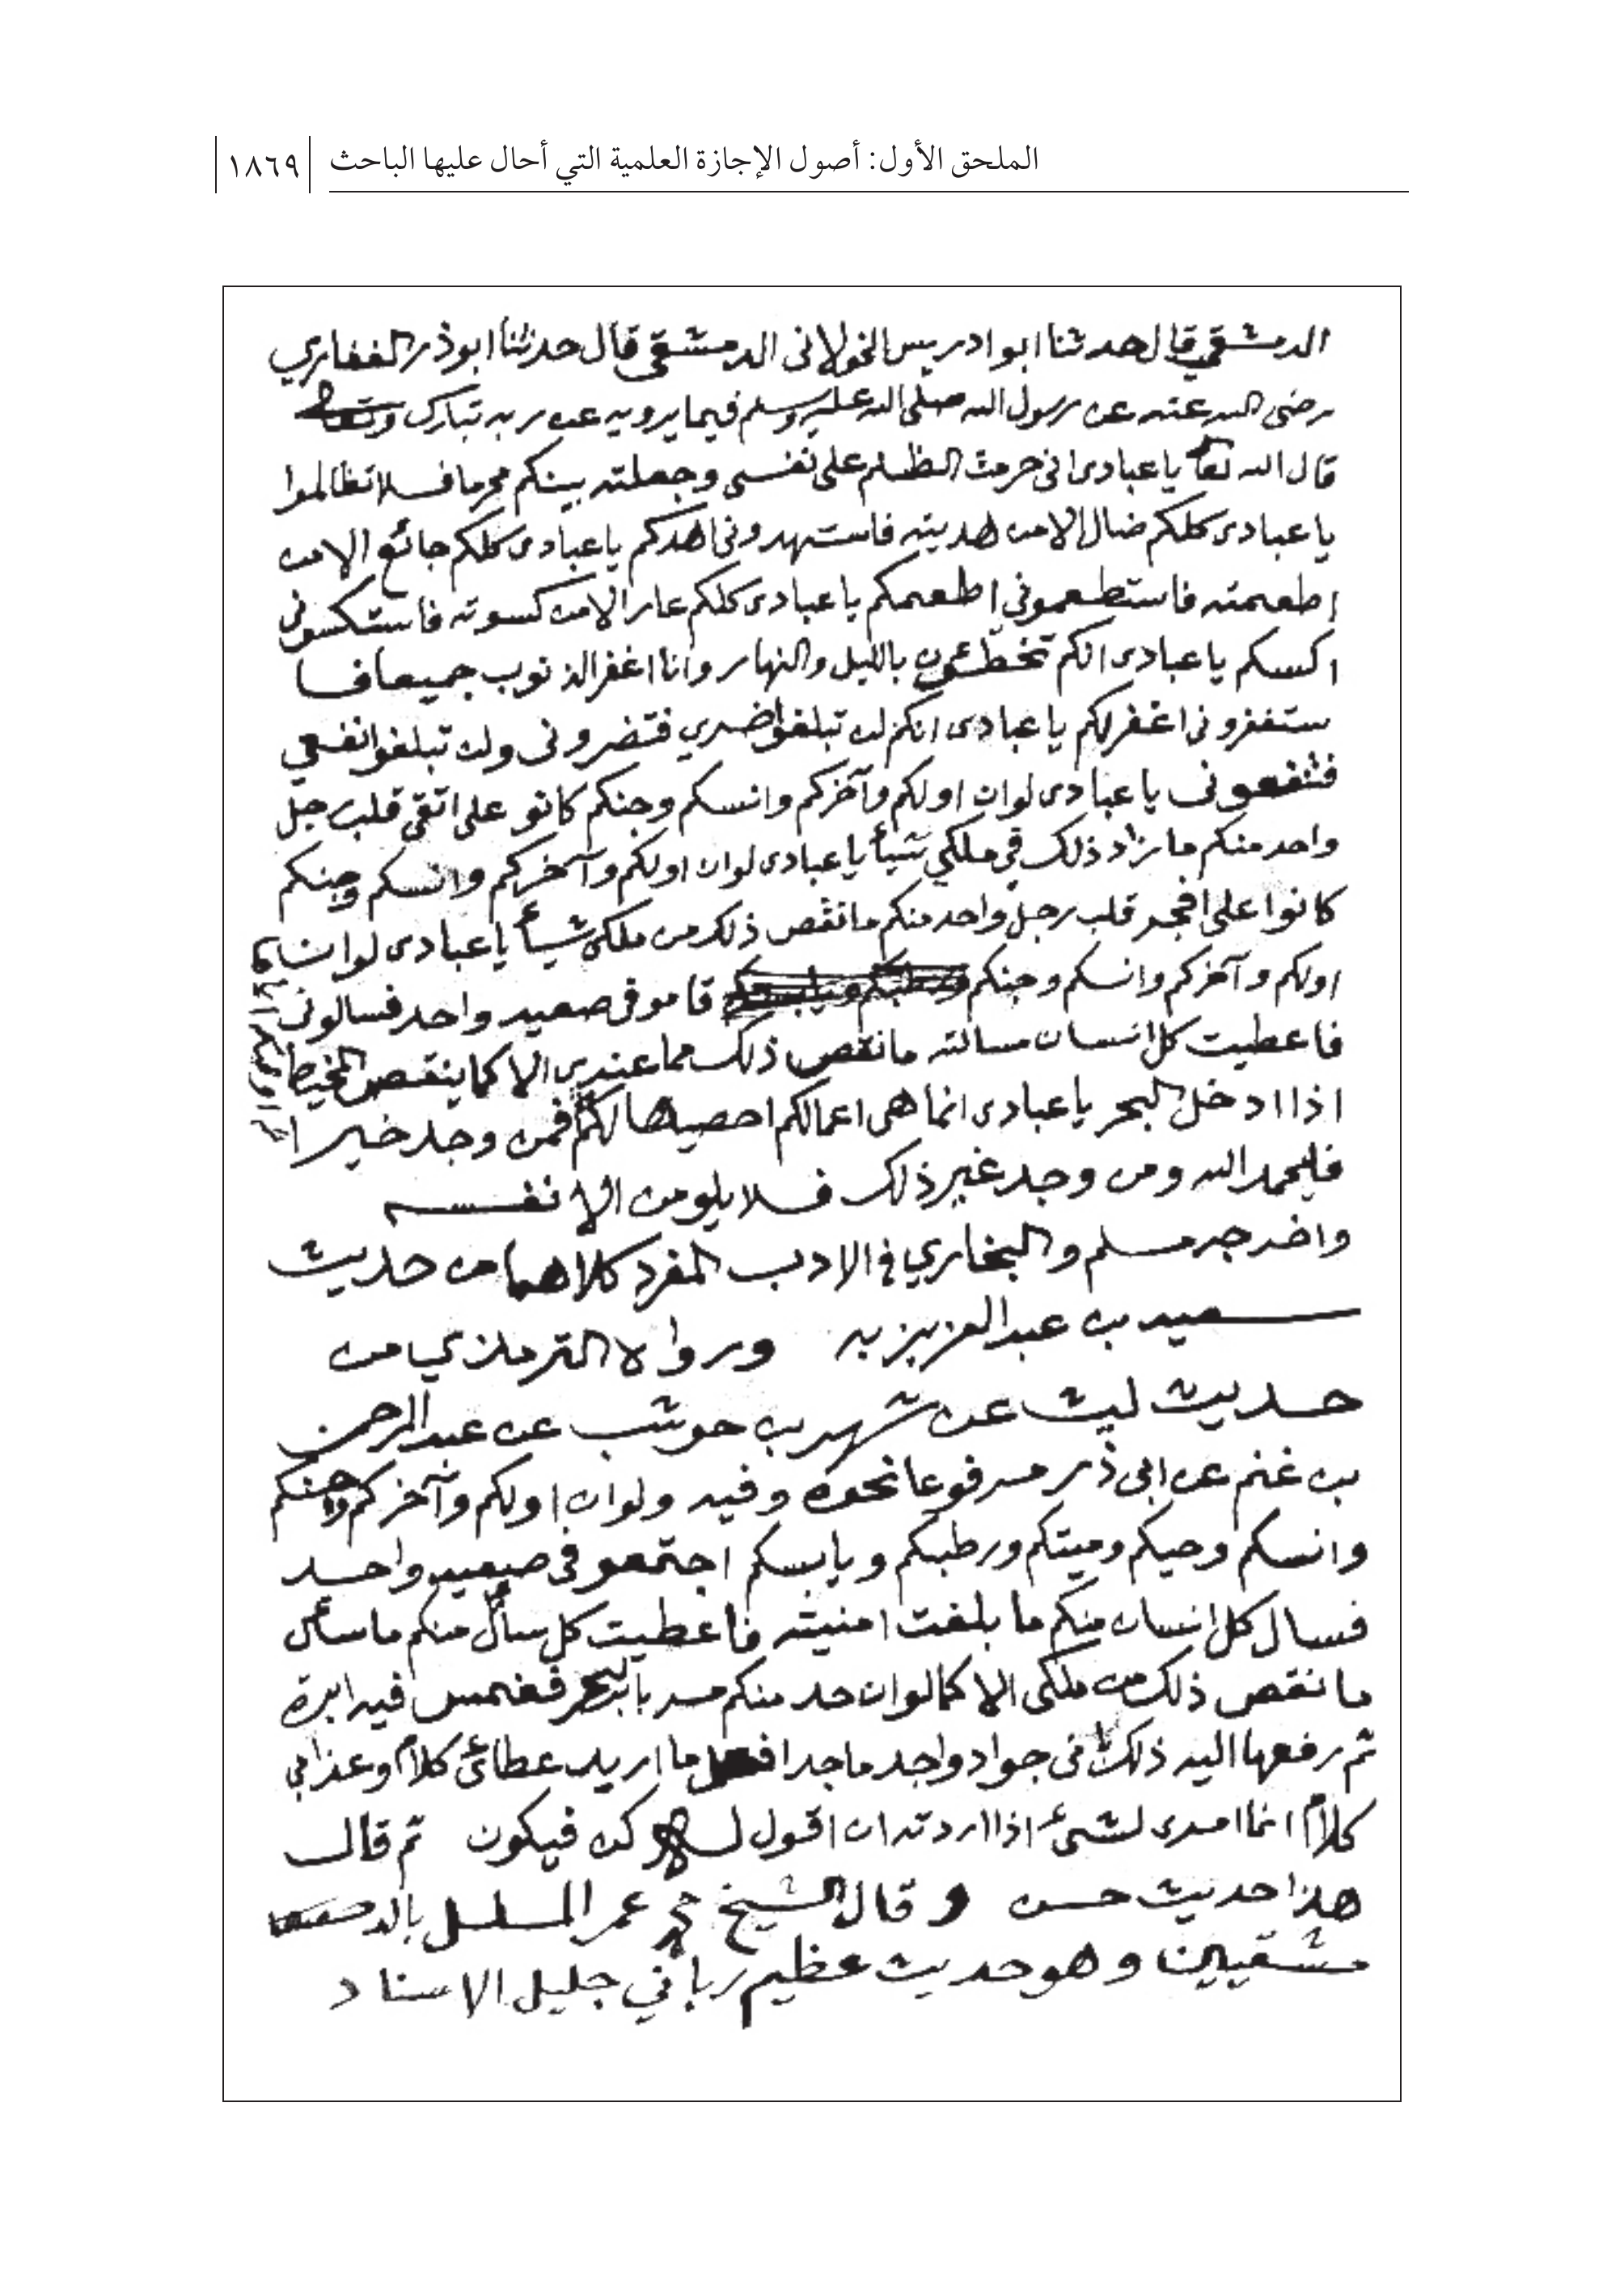 الملحق الأول: أصول الإجازة العلمية التي أحال عليها الباحث ١٨٦٩
الدمشقي قال حدثنا ابو ادريس الخولاني الدمشقي قال حدثنا ابو ذر الغفاري
رضى الله عنه عن رسول الله صلى الله عليه وسلم فيما يرويه عن ربه تبارك وتعا
قال الله تعا يا عبادى انى حرمت الظلم على نفسى وجعلته بينكم محرما فلا تظالموا
يا عبادى كلكم ضال الا من هديته فاستهدونى اهدكم يا عبادى كلكم جائع الا من
إطعمته فاستطعمونى إطعمكم يا عبادى كلكم عار الا من كسوته فاستكسونى
اكسكم يا عبادى انكم تخطئون بالليل والنهار وانا اغفر الذنوب جميعا فا
ستغفرونى اغفر لكم يا عبادى انكم لن تبلغوا ضري فتضرونى ولن تبلغوا نفعي
فتنفعونى يا عبادى لو ان اولكم وآخركم وانسكم وجنكم كانو على اتقى قلب رجل
واحد منكم ما زاد ذلك في ملكي شيأ يا عبادى لو ان اولكم وآخركم وانسكم وجنكم
كانوا على افجر قلب رجل واحد منكم ما نقص ذلك من ملكى شيأ يا عبادى لو ان
اولكم وآخركم وانسكم وجنكم قامو فى صعيد واحد فسالونى
فاعطيت كل انسان مسالته ما نقص ذلك مما عندى الا كما ينقص المخيط
اذا ادخل البحر يا عبادى انما هى اعمالكم احصيها لكم فمن وجد خيرا
فليحمد الله ومن وجد غير ذلك فلا يلومن الا نفسه
واخرجه مسلم والبخاري في الادب المفرد كلاهما من حديث
سعيد بن عبد العزيز به ورواه الترمذي من
حديث ليث عن شهر بن حوشب عن عبد الرحمن
بن غنم عن ابى ذر مرفوعا نحوه وفيه ولو ان اولكم وآخركم وجنكم
وانسكم وحيكم وميتكم ورطبكم ويابسكم اجتمعو فى صعيد واحد
فسال كل انسان منكم ما بلغت امنيته فاعطيت كل سأل منكم ما سأل
ما نقص ذلك من ملكى الا كما لو ان حد منكم مر بالبحر فغمس فيه ابرة
ثم رفعها اليه ذلك نى جواد واجد ماجد افعل ما اريد عطائى كلام وعذابي
كلام انما امرى لشىء اذا اردته ان اقول له كن فيكون ثم قال
هذا حديث حسن وقال الشيخ محمد عمر المسلسل بالد
مشقيين وهو حديث عظيم رباني جليل الاسناد